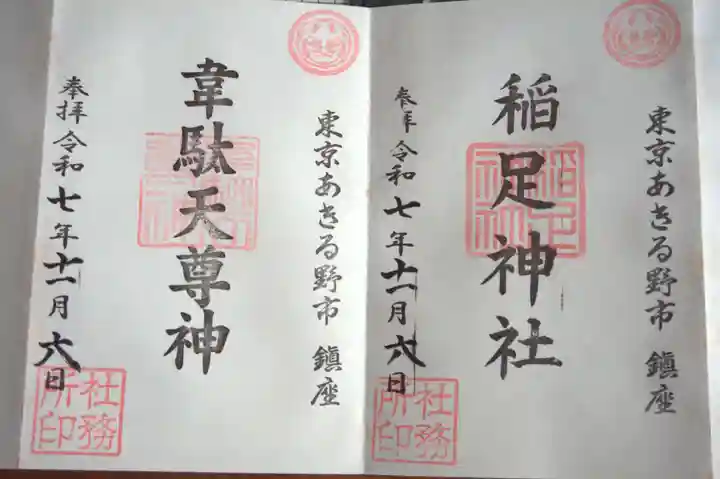 東京あきる野市 鎮座
稲足神社
奉拝 令和七年十一月六日
稲足神社
社務所印
東京あきる野市 鎮座
韋駄天尊神
奉拝 令和七年十一月六日
社務所印